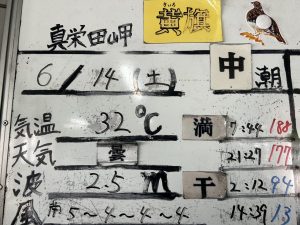 真栄田岬
きいろ
黄旗
6/14(土)
中潮
気温 32℃
満 7:44 188
天気 曇
21:27 177
波 2.5m
干 2:12 94
風 南5~4~4~4
14:29 13